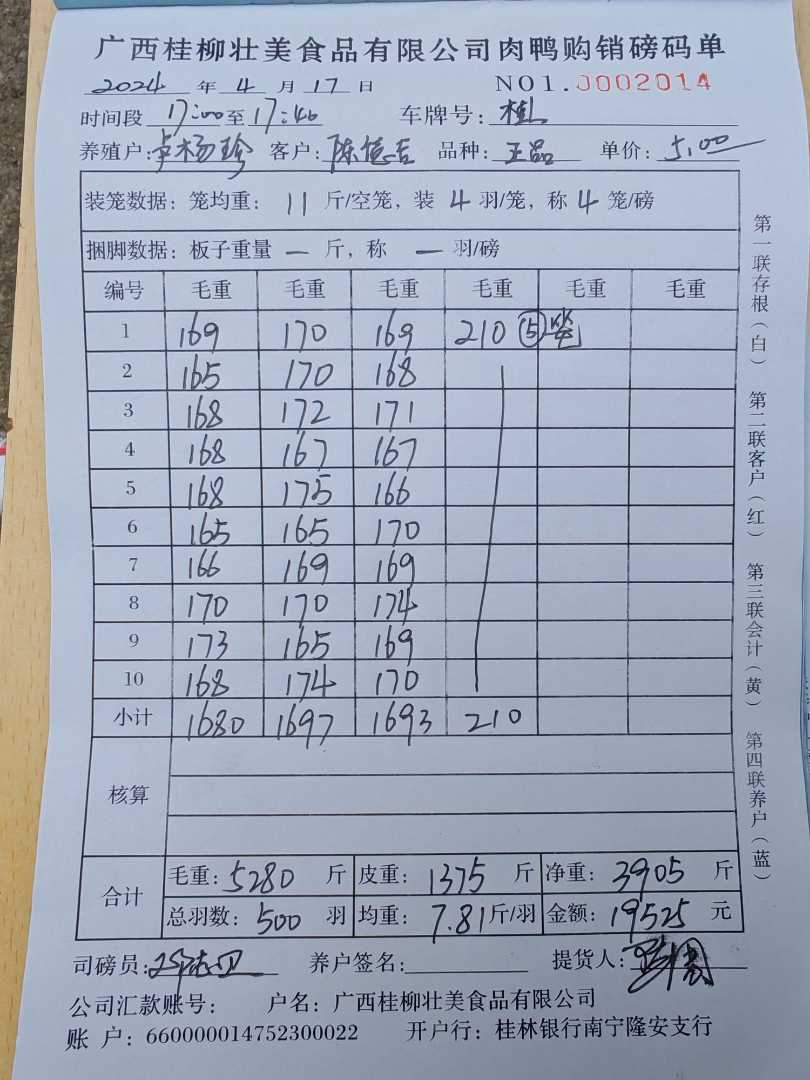 广西桂柳壮美食品有限公司肉鸭购销磅码单
2024 年 4 月 17 日 NO1.0002014
时间段 17:00 至 17:46 车牌号: 桂
养殖户: 卢杨珍 客户: 陈德吉 品种: 王品 单价: 5.00
装笼数据: 笼均重: 11 斤/空笼, 装 4 羽/笼, 称 4 笼/磅
捆脚数据: 板子重量 — 斤, 称 — 羽/磅
编号 毛重 毛重 毛重 毛重 毛重 毛重
1 169 170 169 210 ⑤笼
2 165 170 168
3 168 172 171
4 168 167 167
5 168 175 166
6 165 165 170
7 166 169 169
8 170 170 174
9 173 165 169
10 168 174 170
小计 1680 1697 1693 210
核算
合计
毛重: 5280 斤 皮重: 1375 斤 净重: 3905 斤
总羽数: 500 羽 均重: 7.81 斤/羽 金额: 19525 元
司磅员: 养户签名: 提货人:
公司汇款账号: 户名: 广西桂柳壮美食品有限公司
账 户: 660000014752300022 开户行: 桂林银行南宁隆安支行
第一联存根(白) 第二联客户(红) 第三联会计(黄) 第四联养户(蓝)